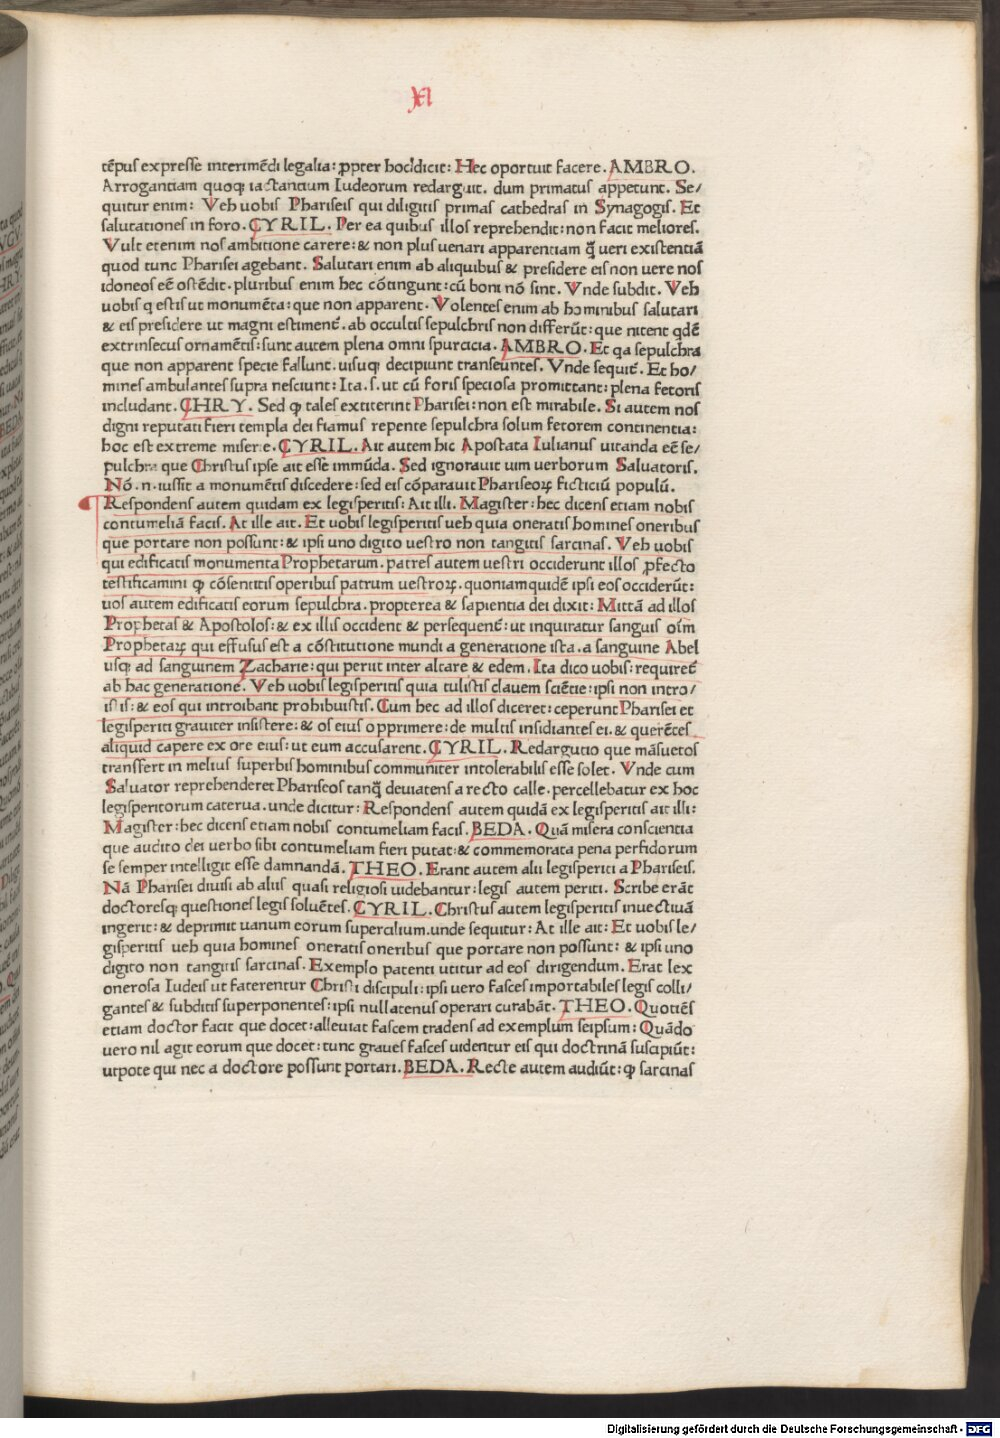 XI
tēpus expresse interimēdi legalia: ꝓpter hoc dicit: Hec oportuit facere. AMBRO.
Arrogantiam quoqꝫ iactantium Iudeorum redarguit. dum primatus appetunt. Se/
quitur enim: Veh uobis Phariseis qui diligitis primas cathedras in Synagogis. Et
salutationes in foro. CYRIL. Per ea quibus illos reprehendit: non facit meliores.
Vult etenim nos ambitione carere: & non plus uenari apparentiam q̄ ueri existentiā
quod tunc Pharisei agebant. Salutari enim ab aliquibus & presidere eis non uere nos
idoneos eē ostēdit. pluribus enim hec cōtingunt: cū boni nō sint. Vnde subdit. Veh
uobis q estis ut monumēta: que non apparent. Volentes enim ab hominibus salutari
& eis presidere ut magni estiment̄. ab occultis sepulchris non differūt: que nitent qdē
extrinsecus ornamētis: sunt autem plena omni spurcicia. AMBRO. Et qa sepulchra
que non apparent specie fallunt. uisuqꝫ decipiunt transeuntes. Vnde sequit̄. Et ho/
mines ambulantes supra nesciunt: Ita. s. ut cū foris speciosa promittant: plena fetoris
includant. CHRY. Sed ꝙ tales extiterint Pharisei: non est mirabile. Si autem nos
digni reputati fieri templa dei fiamus repente sepulchra solum fetorem continentia:
hoc est extreme miserie. CYRIL. Ait autem hic Apostata Iulianus uitanda eē se/
pulchra que Christus ipse ait esse immūda. Sed ignorauit uim uerborum Saluatoris.
Nō. n. iussit a monumētis discedere: sed eis cōparauit Phariseoꝝ ficticiū populū.
Respondens autem quidam ex legisperitis: Ait illi. Magister: hec dicens etiam nobis
contumeliā facis. At ille ait. Et uobis legisperitis ueh quia oneratis homines oneribus
que portare non possunt: & ipsi uno digito uestro non tangitis sarcinas. Veh uobis
qui edificatis monumenta Prophetarum. patres autem uestri occiderunt illos ꝓfecto
testificamini ꝙ cōsentitis operibus patrum uestroꝝ. quoniamquidē ipsi eos occiderūt:
uos autem edificatis eorum sepulchra. propterea & sapientia dei dixit: Mittā ad illos
Prophetas & Apostolos: & ex illis occident & persequent̄: ut inquiratur sanguis oīm
Prophetaꝝ qui effusus est a cōstitutione mundi a generatione ista. a sanguine Abel
usqꝫ ad sanguinem Zacharie: qui periit inter altare & edem. Ita dico uobis: requiret̄
ab hac generatione. Veh uobis legisperitis quia tulistis clauem sciētie: ipsi non intro/
istis: & eos qui introibant prohibuistis. Cum hec ad illos diceret: ceperunt Pharisei et
legisperiti grauiter insistere: & os eius opprimere: de multis insidiantes ei. & querētes
aliquid capere ex ore eius: ut eum accusarent. CYRIL. Redargutio que māsuetos
transfert in melius superbis hominibus communiter intolerabilis esse solet. Vnde cum
Saluator reprehenderet Phariseos tanq̄ deuiatens a recto calle. percellebatur ex hoc
legisperitorum caterua. unde dicitur: Respondens autem quidā ex legisperitis ait illi:
Magister: hec dicens etiam nobis contumeliam facis. BEDA. Quā misera conscientia
que audito dei uerbo sibi contumeliam fieri putat: & commemorata pena perfidorum
se semper intelligit esse damnandā. THEO. Erant autem alii legisperiti a Phariseis.
Nā Pharisei diuisi ab aliis quasi religiosi uidebantur: legis autem periti. Scribe erāt
doctoresqꝫ questiones legis soluētes. CYRIL. Christus autem legisperitis inuectiuā
ingerit: & deprimit uanum eorum supercilium. unde sequitur: At ille ait: Et uobis le/
gisperitis ueh quia homines oneratis oneribus que portare non possunt: & ipsi uno
digito non tangitis sarcinas. Exemplo patenti utitur ad eos dirigendum. Erat lex
onerosa Iudeis ut faterentur Christi discipuli: ipsi uero fasces importabiles legis colli/
gantes & subditis superponentes: ipsi nullatenus operari curabāt. THEO. Quotiēs
etiam doctor facit que docet: alleuiat fascem tradens ad exemplum seipsum: Quādo
uero nil agit eorum que docet: tunc graues fasces uidentur eis qui doctrinā suscipiūt:
utpote qui nec a doctore possunt portari. BEDA. Recte autem audiūt: ꝙ sarcinas
Digitalisierung gefördert durch die Deutsche Forschungsgemeinschaft - DFG